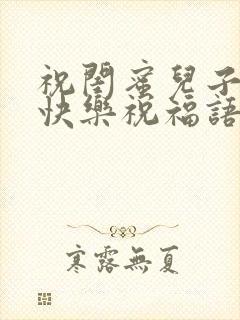 祝閨蜜兒子
快樂祝福語
寒露無夏